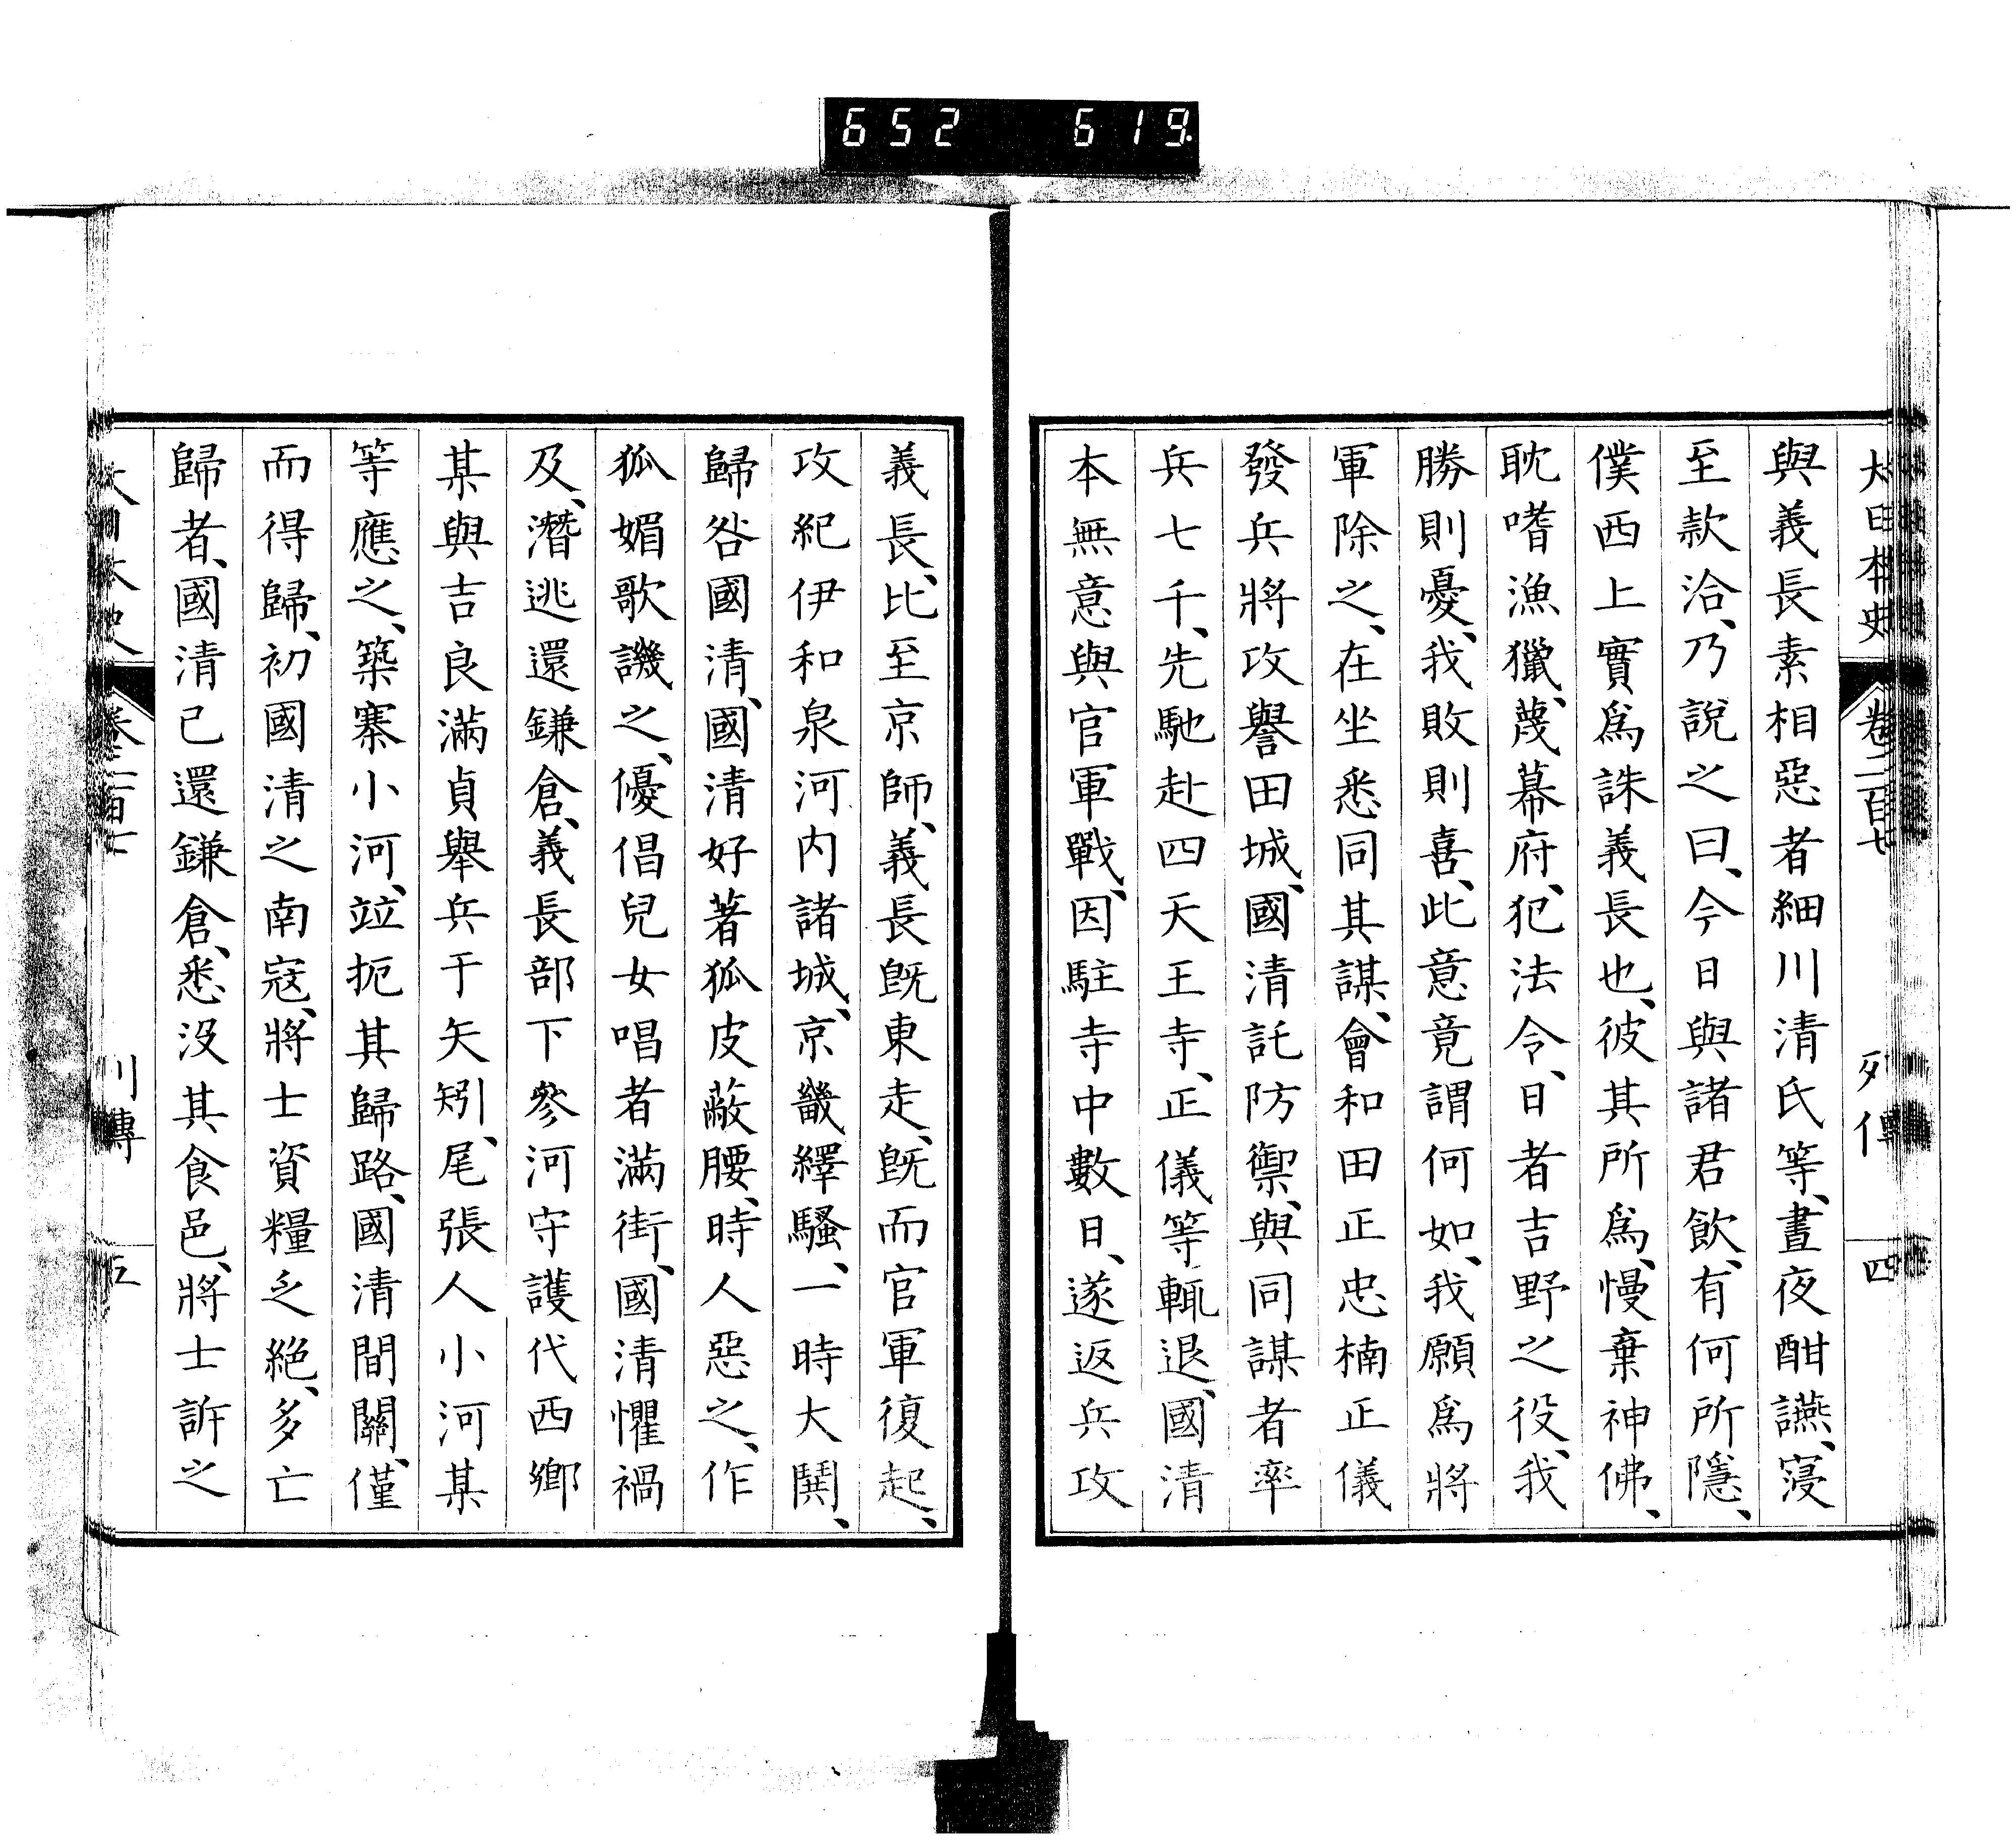 652 619
大日本史 卷二百七 列傳 四
與義長素相惡者細川清氏等、晝夜酣讌、寖
至款洽、乃說之曰、今日與諸君飮、有何所隱、
僕西上實爲誅義長也、彼其所爲、慢棄神佛、
耽嗜漁獵、蔑幕府、犯法令、日者吉野之役、我
勝則憂、我敗則喜、此意竟謂何如、我願爲將
軍除之、在坐悉同其謀、會和田正忠楠正儀
發兵將攻譽田城、國清託防禦、與同謀者率
兵七千、先馳赴四天王寺、正儀等輒退、國清
本無意與官軍戰、因駐寺中數日、遂返兵攻
義長、比至京師、義長旣東走、旣而官軍復起、
攻紀伊和泉河內諸城、京畿繹騷、一時大鬨、
歸咎國清、國清好著狐皮蔽腰、時人惡之、作
狐媚歌譏之、優倡兒女唱者滿街、國清懼禍
及、潛逃還鎌倉、義長部下參河守護代西鄉
某與吉良滿貞舉兵于矢矧、尾張人小河某
等應之、築寨小河、竝扼其歸路、國清間關、僅
而得歸、初國清之南寇、將士資糧乏絕、多亡
歸者、國清已還鎌倉、悉沒其食邑、將士訴之
大日本史 卷二百七 列傳 五